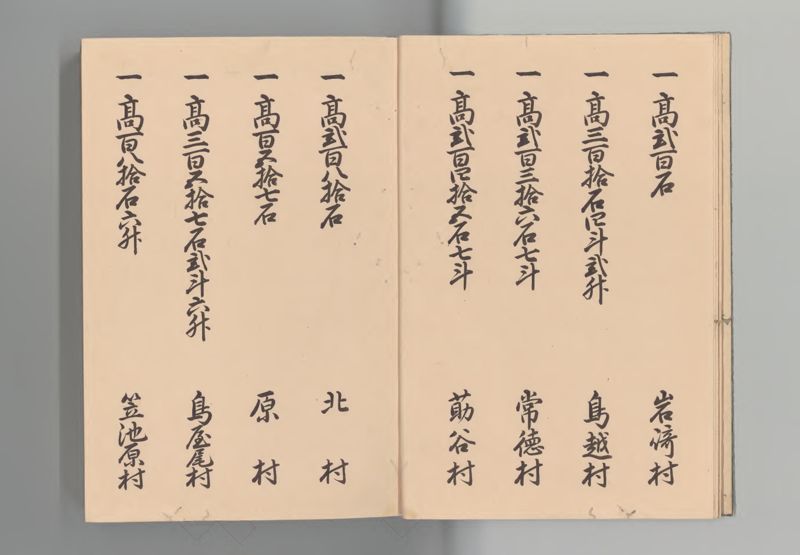 一 高弐百石 岩﨑村
一 高三百拾石四斗弐升 鳥越村
一 高弐百三拾六石七斗 常徳村
一 高弐百四拾五石七斗 莇谷村
一 高弐百八拾石 北村
一 高百五拾七石 原村
一 高三百五拾七石弐斗六升 鳥屋尾村
一 高百八拾石六升 笠池原村